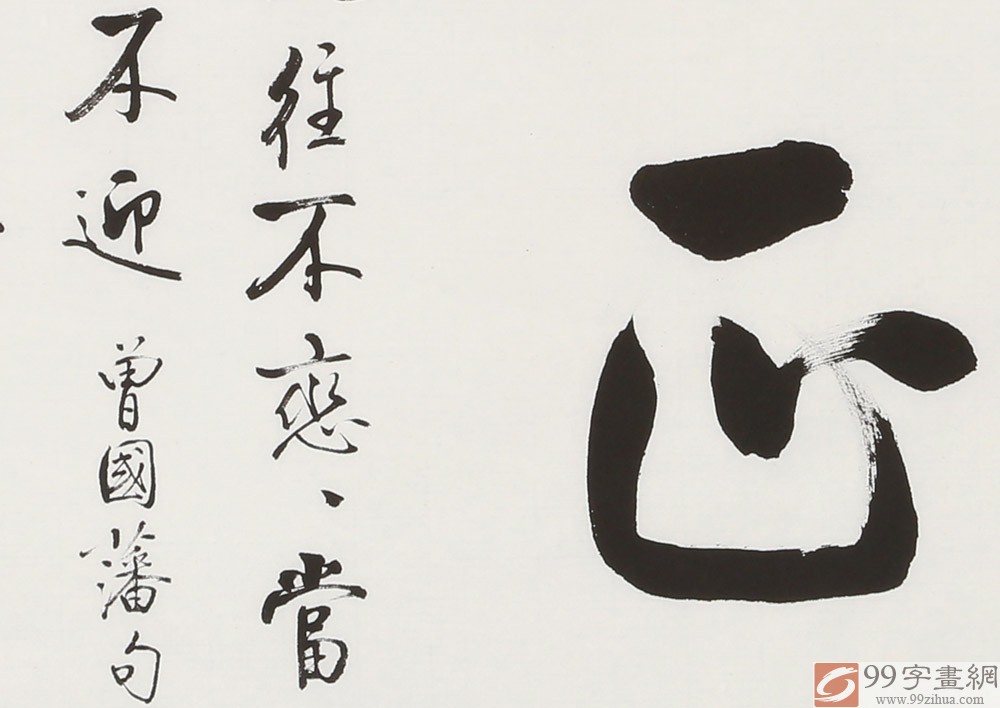 正
往不戀、當
不迎 曾國藩句
99字畫網
www.99zihua.com